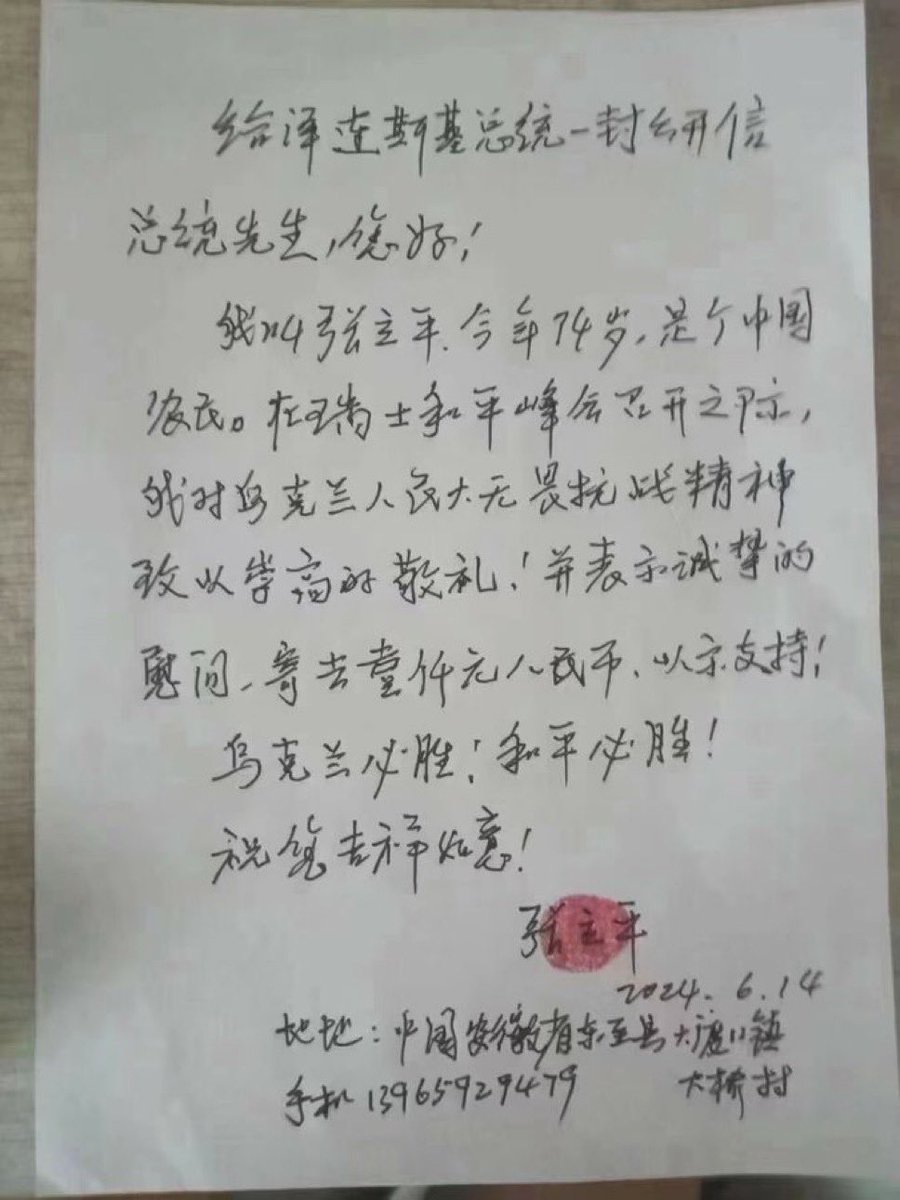 给泽连斯基总统一封公开信
总统先生,您好!
我叫张立平.今年74岁,是个中国
农民。在瑞士和平峰会召开之际,
我对乌克兰人民大无畏抗战精神
致以崇高的敬礼!并表示诚挚的
慰问、寄去壹仟元人民币、以示支持!
乌克兰必胜!和平必胜!
祝您吉祥如意!
张立平
2024.6.14
地址:中国安徽省东至县大渡口镇
手机13965929479 大桥村